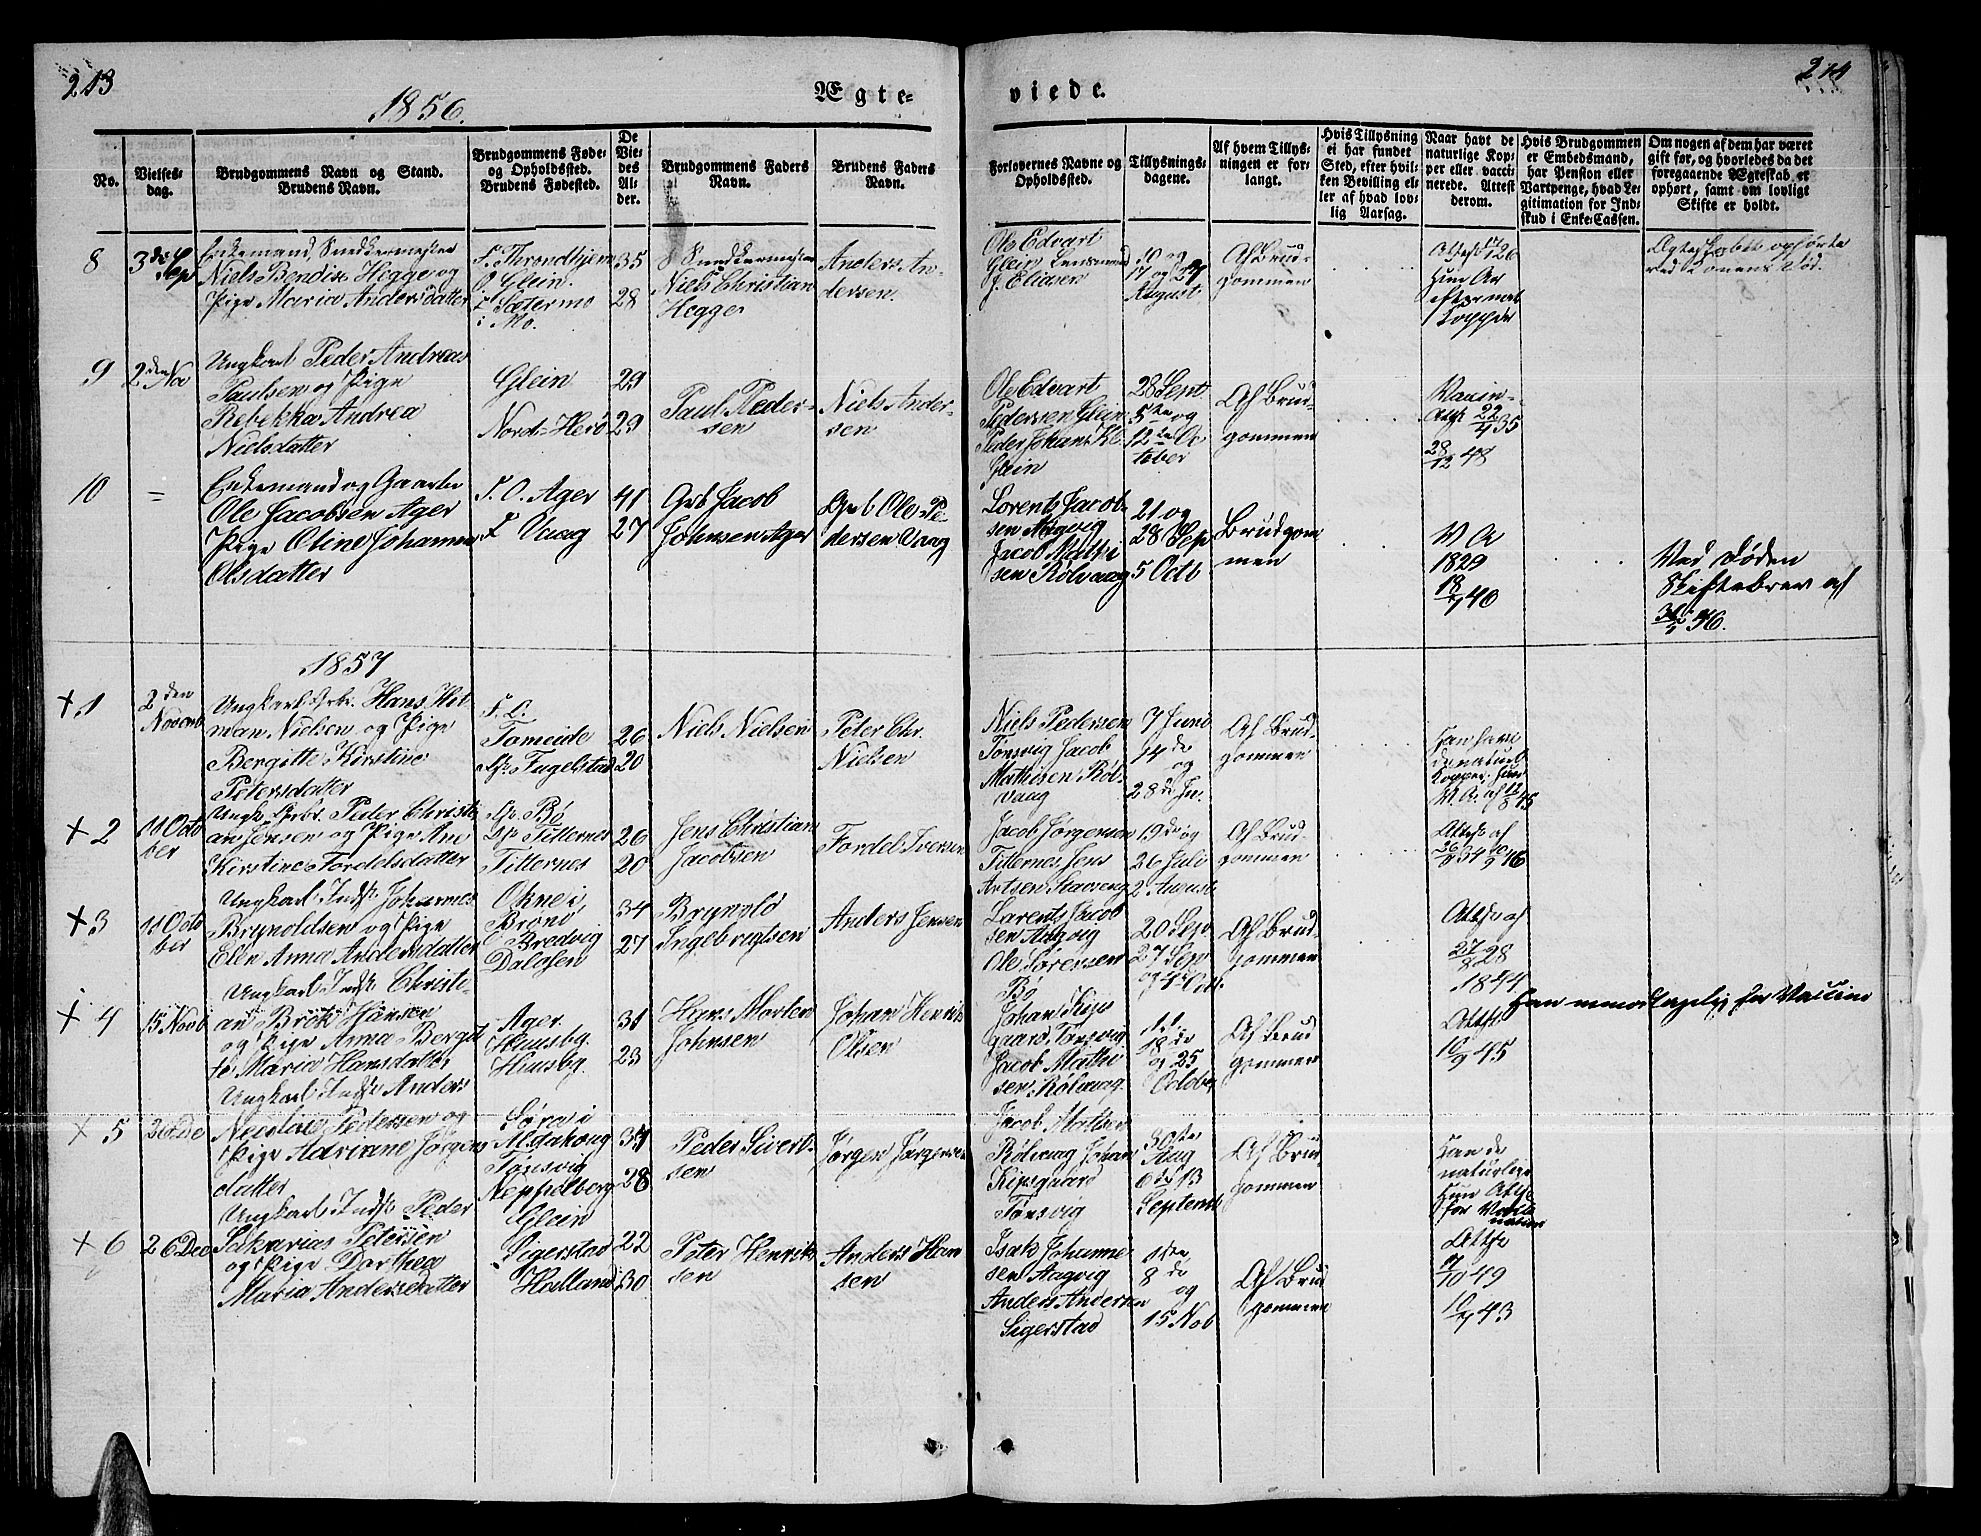 213
214
1856.
Ægte-
viede.
No.
Vielses-
dag.
Brudgommens Navn og Stand.
Brudens Navn.
Brudgommens Føde-
og Opholdssted.
Brudens Fødested.
De
Vie-
des
Al-
der.
Brudgommens Faders
Navn.
Brudens Faders
Navn.
Forlovernes Navne og
Opholdssted.
Tillysnings-
dagene.
Af hvem Tillys-
ningen er for-
langt.
Hvis Tillysning
ei har fundet
Sted, efter hvil-
ken Bevilling el-
ler af hvad lov-
lig Aarsag.
Naar havt de
naturlige Kop-
per eller vacci-
nerede. Attest
derom.
Hvis Brudgommen
er Embedsmand,
har Pension eller
Vartpenge, hvad Le-
gitimation for Ind-
skud i Enke-Cassen.
Om nogen af dem har været
gift før, og hvorledes da det
foregaaende Ægteskab er
ophørt, samt om lovligt
Skifte er holdt.
8
3 de Sep
Enkemand, Snedkermester
Niels Bendix Hegge og
Pige Maria Andersdatter
F. Throndhjem
O. Glein.
F. Sætermo
i Mo.
35
28
Snedkermester
Niels Christian
Hegge
Anders An-
dersen.
Ole Edvart
Glein Lensmand
J. Eliasen
10 og
17 og 24
August
Af Brud-
gommen
Ægteskabet ophørte
ved Konens Død.
9
2 den No
Ungkarl Peder Andreas
Paulsen og Pige
Rebekka Andrea
Nielsdatter
Glein
Nord-Herö
29
29
Paul Peder-
sen
Niels Ander-
sen
Ole Edvart
Pedersen Glein
Peder Johans
Glein
28 Sept
5 te og
12 te Oc
tober
Af Brud-
gommen
Vaccin-
Att 22/4 35
28/12 48
10
=
Enkemand og Gaardbr
Ole Jacobsen Ager
Pige Oline Johanna
Olsdatter
F. O. Ager
F. Vaag
41
27
Grb Jacob
Johnsen Ager
Grb Ole Pe-
dersen Vaag
Lorents Jacob-
sen Aagvig
Jacob Mathi
sen Rölvaag
21 og
28 Sep
5 Octb
Brudgom
men
V A
1829
18/7 40
Ved Døden
Skiftebrev af
56.
1857
+ 1
2 den
Novemb
Ungkarl Hans Hit-
man Nielsen og Pige
Bergitte Kirstine
Petersdatter
Tomeide
Fugelstad
26
20
Niels Nielsen
Peter Chr.
Nielsen
Niels Pedersen
Tönsvig Jacob
Mathisen Röl-
vaag
7 Juni
14 de
og
28 de Ju.
Af Brud-
gommen
+ 2
11 Octo
ber
Ungk. Peder Christi
an Jensen og Pige Ane
Kirstine Fordelsdatter
Bö
Titternes
Titternes
26
20
Jens Christian
Jacobsen
Fordel Iversen
Jacob Jörgensen
Titternes Jens
Artsen Stavseng
19 de og
26 Juli
2 August
Af Brud-
gommen
Attest af
+ 3
11 Octo
ber
Ungkarl Inds. Johannes
Brynoldsen og Pige
Elen Anna Andersdatter
Okne i
Brönö
Bredvig
Dalosen
34
27
Brynold
Ingebrigtsen
Anders Jensen
Larents Jacob
sen Aagvig
Ole Sörensen
Bö
20 Sep.
27 Sep
og 4 Oct.
Af Brud-
gommen
Attest af
1844
+ 4
15 Novb
Ungkarl Inds. Christi-
an Brok Hansen
og Pige Anna Bergit
te Maria Hansdatter
Ager
Huusby
Huusby
31
23
Hans Morten
Johnsen
Johan Henrik
Olsen
Johan Kips
gaard Tönsvig
Jacob Mathi
sen Rölvaag
11.
18 de
og 25
Octob
Af Brud
gommen
Han mmodtagelig for Vaccine
Attest
10/9 45
+ 5
26 De
Ungkarl Inds. Anders
Nicolai Pedersen og
Pige Adriane Jörgens
datter
Söra i
Alstahoug
Tönsvig
Nepfielberg
34
28
Peder Sivert-
sen
Jörgen Jörgensen
Jacob Mathsen
Rölvaag Johan
Kipsgaard
Tönsvig
30 te
Aug
6 te 13
Septemb
Af Brud
gommen
Han de
naturlige
Hun Attst
for Vacci
nation
+ 6
26 Dec
Ungkarl Inds. Peder
Sakarias Petersen
og Pige Dorthea
Maria Andersdatter
Glein
Sigerstad
Halland
22
30
Peter Henrik
sen
Anders Han
sen
Isak Johanne
sen Aagvig
Anders Andersen
Sigerstad
1 ste
8 de
og
15 Nob
Af Brud
gommen
Attst
49
43